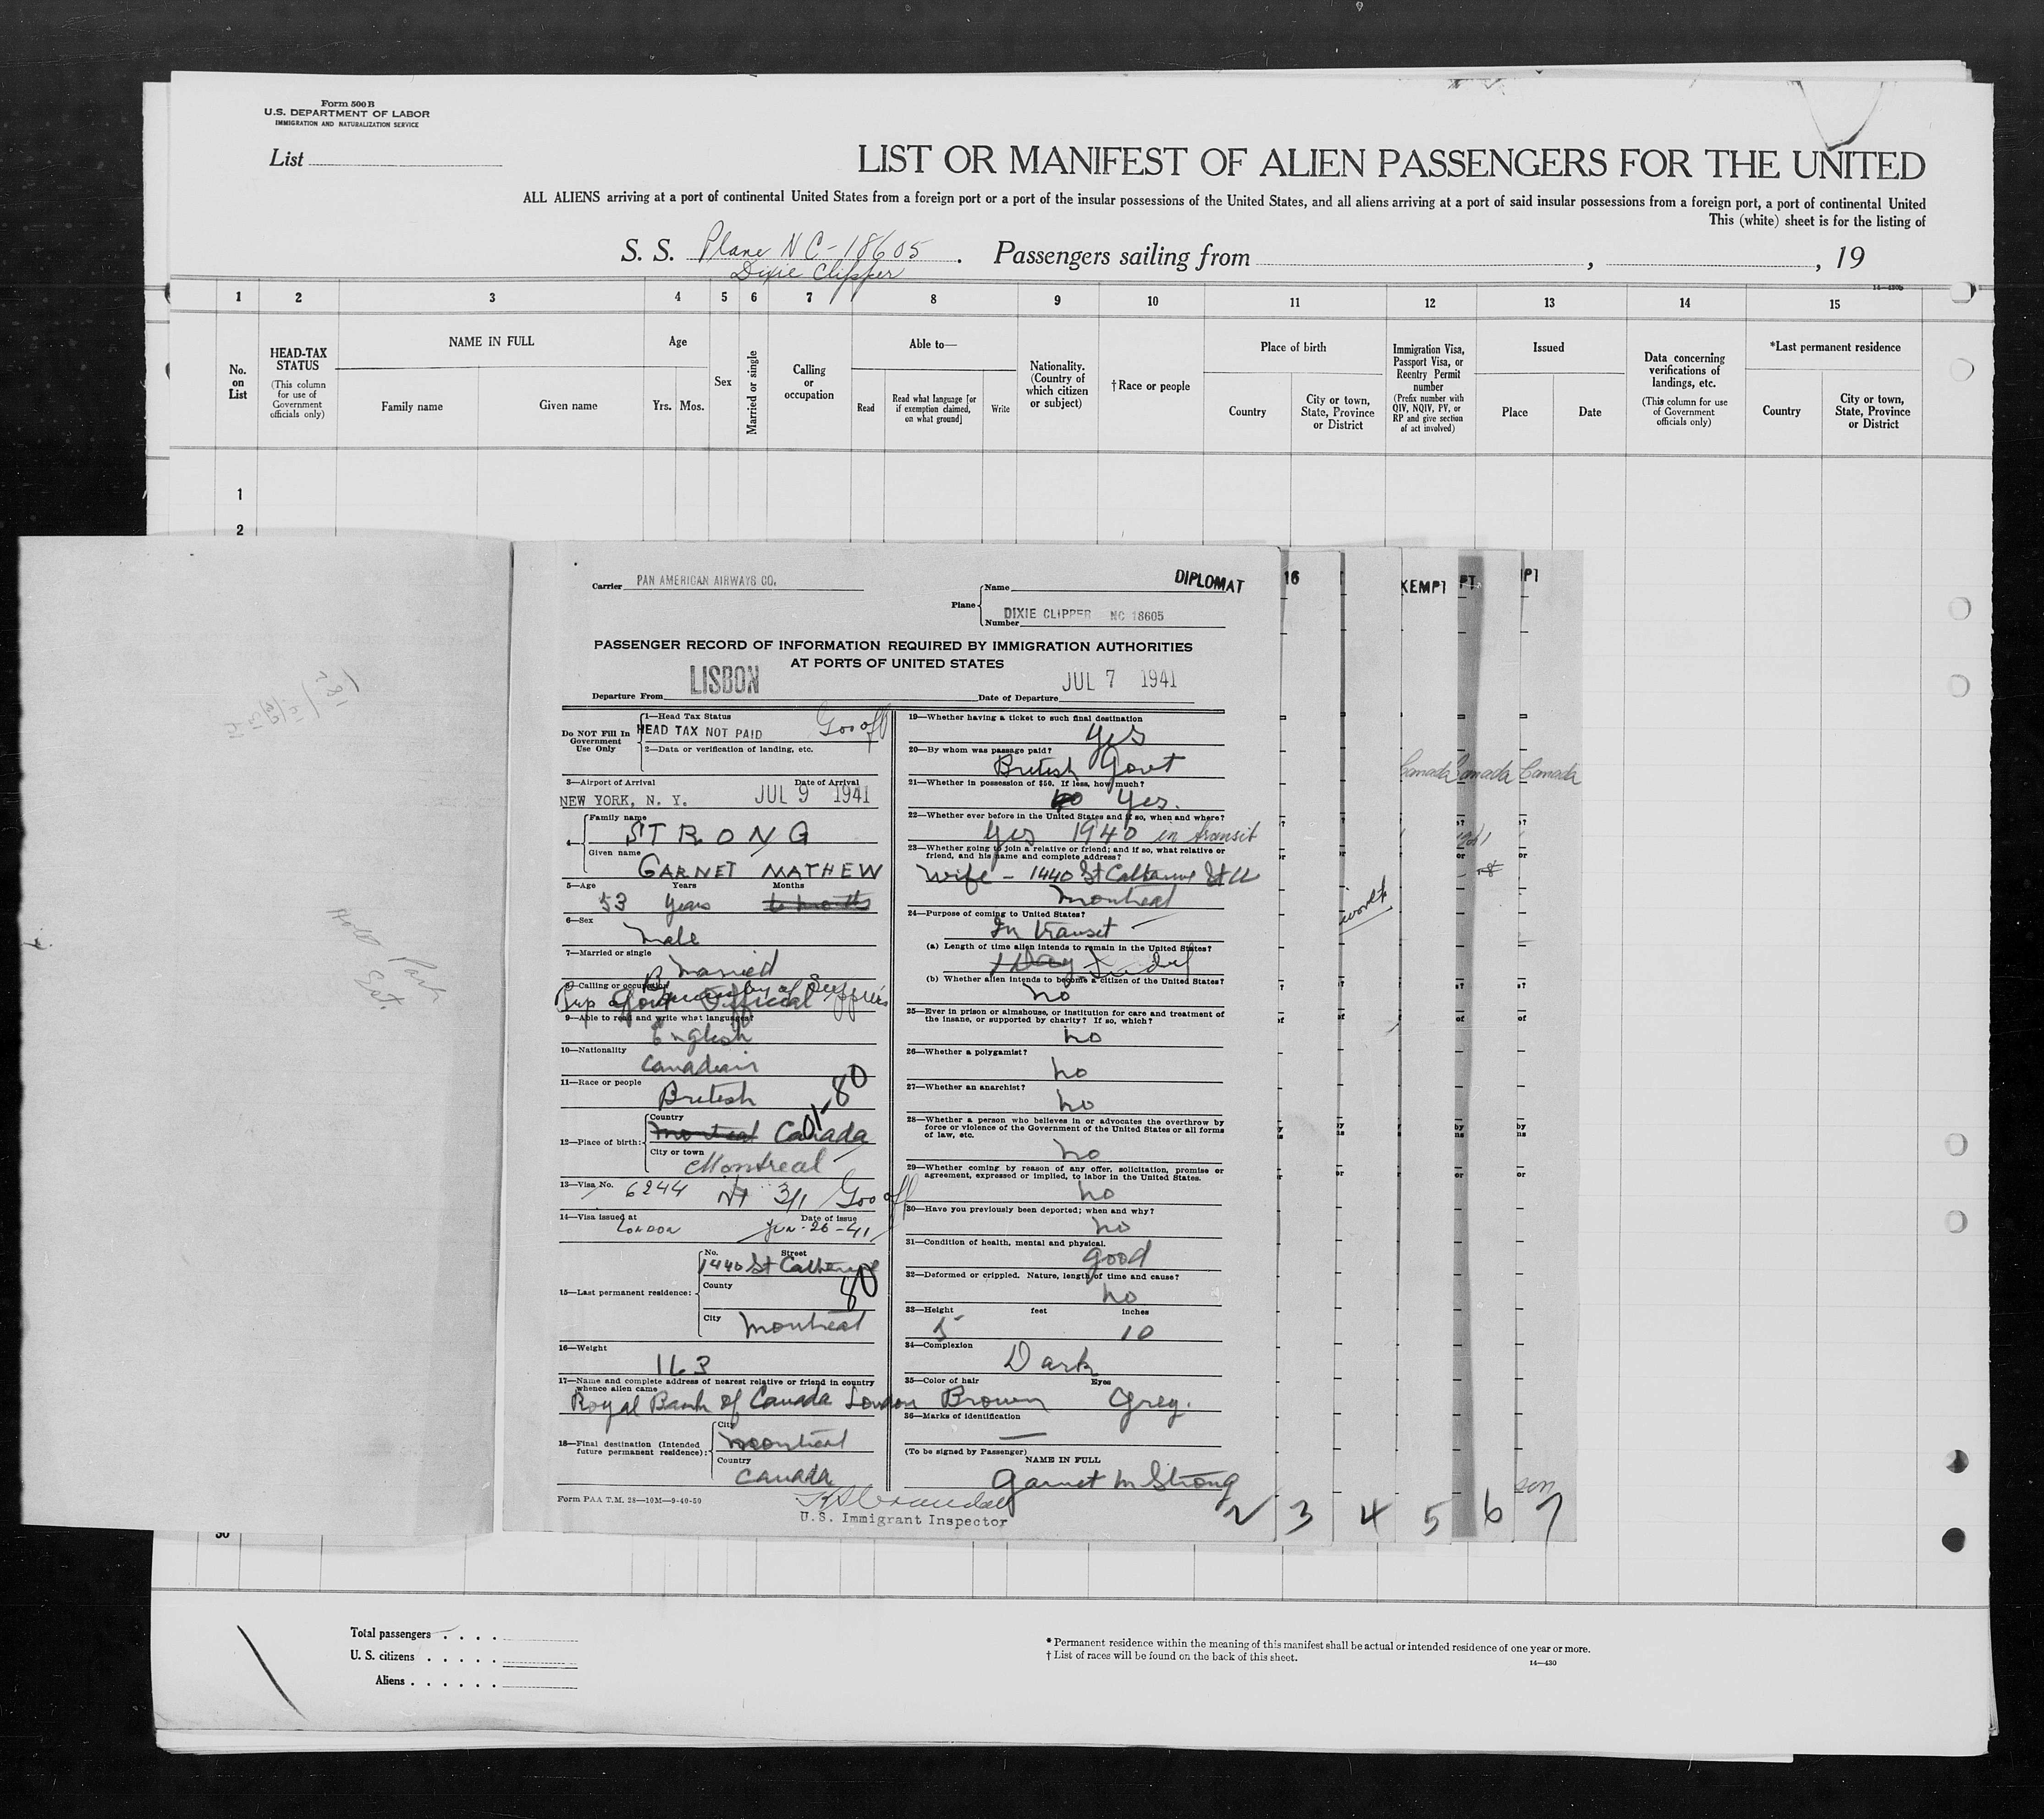 Form 500 B
U.S. DEPARTMENT OF LABOR
IMMIGRATION AND NATURALIZATION SERVICE
List
LIST OR MANIFEST OF ALIEN PASSENGERS FOR THE UNITED
ALL ALIENS arriving at a port of continental United States from a foreign port or a port of the insular possessions of the United States, and all aliens arriving at a port of said insular possessions from a foreign port, a port of continental United
This (white) sheet is for the listing of
S. S. Plane NC-18605. Passengers sailing from , , 19
Dixie Clipper
14—430b
1 2 3 4 5 6 7 8 9 10 11 12 13 14 15
No. on List
HEAD-TAX STATUS
(This column for use of Government officials only)
NAME IN FULL
Family name
Given name
Age
Yrs. Mos.
Sex
Married or single
Calling or occupation
Able to—
Read
Read what language [or if exemption claimed, on what ground]
Write
Nationality. (Country of which citizen or subject)
†Race or people
Place of birth
Country
City or town, State, Province or District
Immigration Visa, Passport Visa, or Reentry Permit number
(Prefix number with QIV, NQIV, PV, or RP and give section of act involved)
Issued
Place
Date
Data concerning verifications of landings, etc.
(This column for use of Government officials only)
*Last permanent residence
Country
City or town, State, Province or District
1
2
Carrier PAN AMERICAN AIRWAYS CO.
Plane
Name
DIPLOMAT
Number DIXIE CLIPPER NC 18605
PASSENGER RECORD OF INFORMATION REQUIRED BY IMMIGRATION AUTHORITIES
AT PORTS OF UNITED STATES
Departure From LISBON
Date of Departure JUL 7 1941
Do NOT Fill In Government Use Only
1—Head Tax Status
HEAD TAX NOT PAID Gov off
2—Data or verification of landing, etc.
3—Airport of Arrival Date of Arrival
NEW YORK, N. Y. JUL 9 1941
4—
Family name
STRONG
Given name
GARNET MATHEW
5—Age Years Months
53 years
6—Sex
Male
7—Married or single
Married
8—Calling or occupation
Govt Official
of Supplies
9—Able to read and write what languages?
English
10—Nationality
Canadian
11—Race or people
British
80
12—Place of birth:
Country
Montreal Canada
City or town
Montreal
13—Visa No. 6244 3/1 Gov off
14—Visa issued at Date of issue
LONDON Jun-26-41
15—Last permanent residence:
No. Street
1440 St Catherine
County
80
City Montreal
16—Weight
163
17—Name and complete address of nearest relative or friend in country whence alien came
Royal Bank of Canada London
18—Final destination (Intended future permanent residence):
City
Montreal
Country
Canada
Form PAA T.M. 28—10M—9-40-50
U.S. Immigrant Inspector
19—Whether having a ticket to such final destination
yes
20—By whom was passage paid?
British Govt
21—Whether in possession of $50. If less, how much?
Yes.
22—Whether ever before in the United States and if so, when and where?
Yes 1940 in transit
23—Whether going to join a relative or friend; and if so, what relative or friend, and his name and complete address?
Wife - 1440 St Catherine St W
Montreal
24—Purpose of coming to United States?
In transit
(a) Length of time alien intends to remain in the United States?
1 Day
(b) Whether alien intends to become a citizen of the United States?
no
25—Ever in prison or almshouse, or institution for care and treatment of the insane, or supported by charity? If so, which?
no
26—Whether a polygamist?
no
27—Whether an anarchist?
no
28—Whether a person who believes in or advocates the overthrow by force or violence of the Government of the United States or all forms of law, etc.
no
29—Whether coming by reason of any offer, solicitation, promise or agreement, expressed or implied, to labor in the United States.
no
30—Have you previously been deported; when and why?
no
31—Condition of health, mental and physical.
good
32—Deformed or crippled. Nature, length of time and cause?
no
33—Height feet inches
5 10
34—Complexion
Dark
35—Color of hair Eyes
Brown Grey.
36—Marks of identification
—
(To be signed by Passenger)
NAME IN FULL
Garnet M Strong
16
XEMPT
PT
IPT
Canada
Canada
Canada
worth
son
2 3 4 5 6 7
30
Total passengers
U. S. citizens
Aliens
* Permanent residence within the meaning of this manifest shall be actual or intended residence of one year or more.
† List of races will be found on the back of this sheet.
14—430